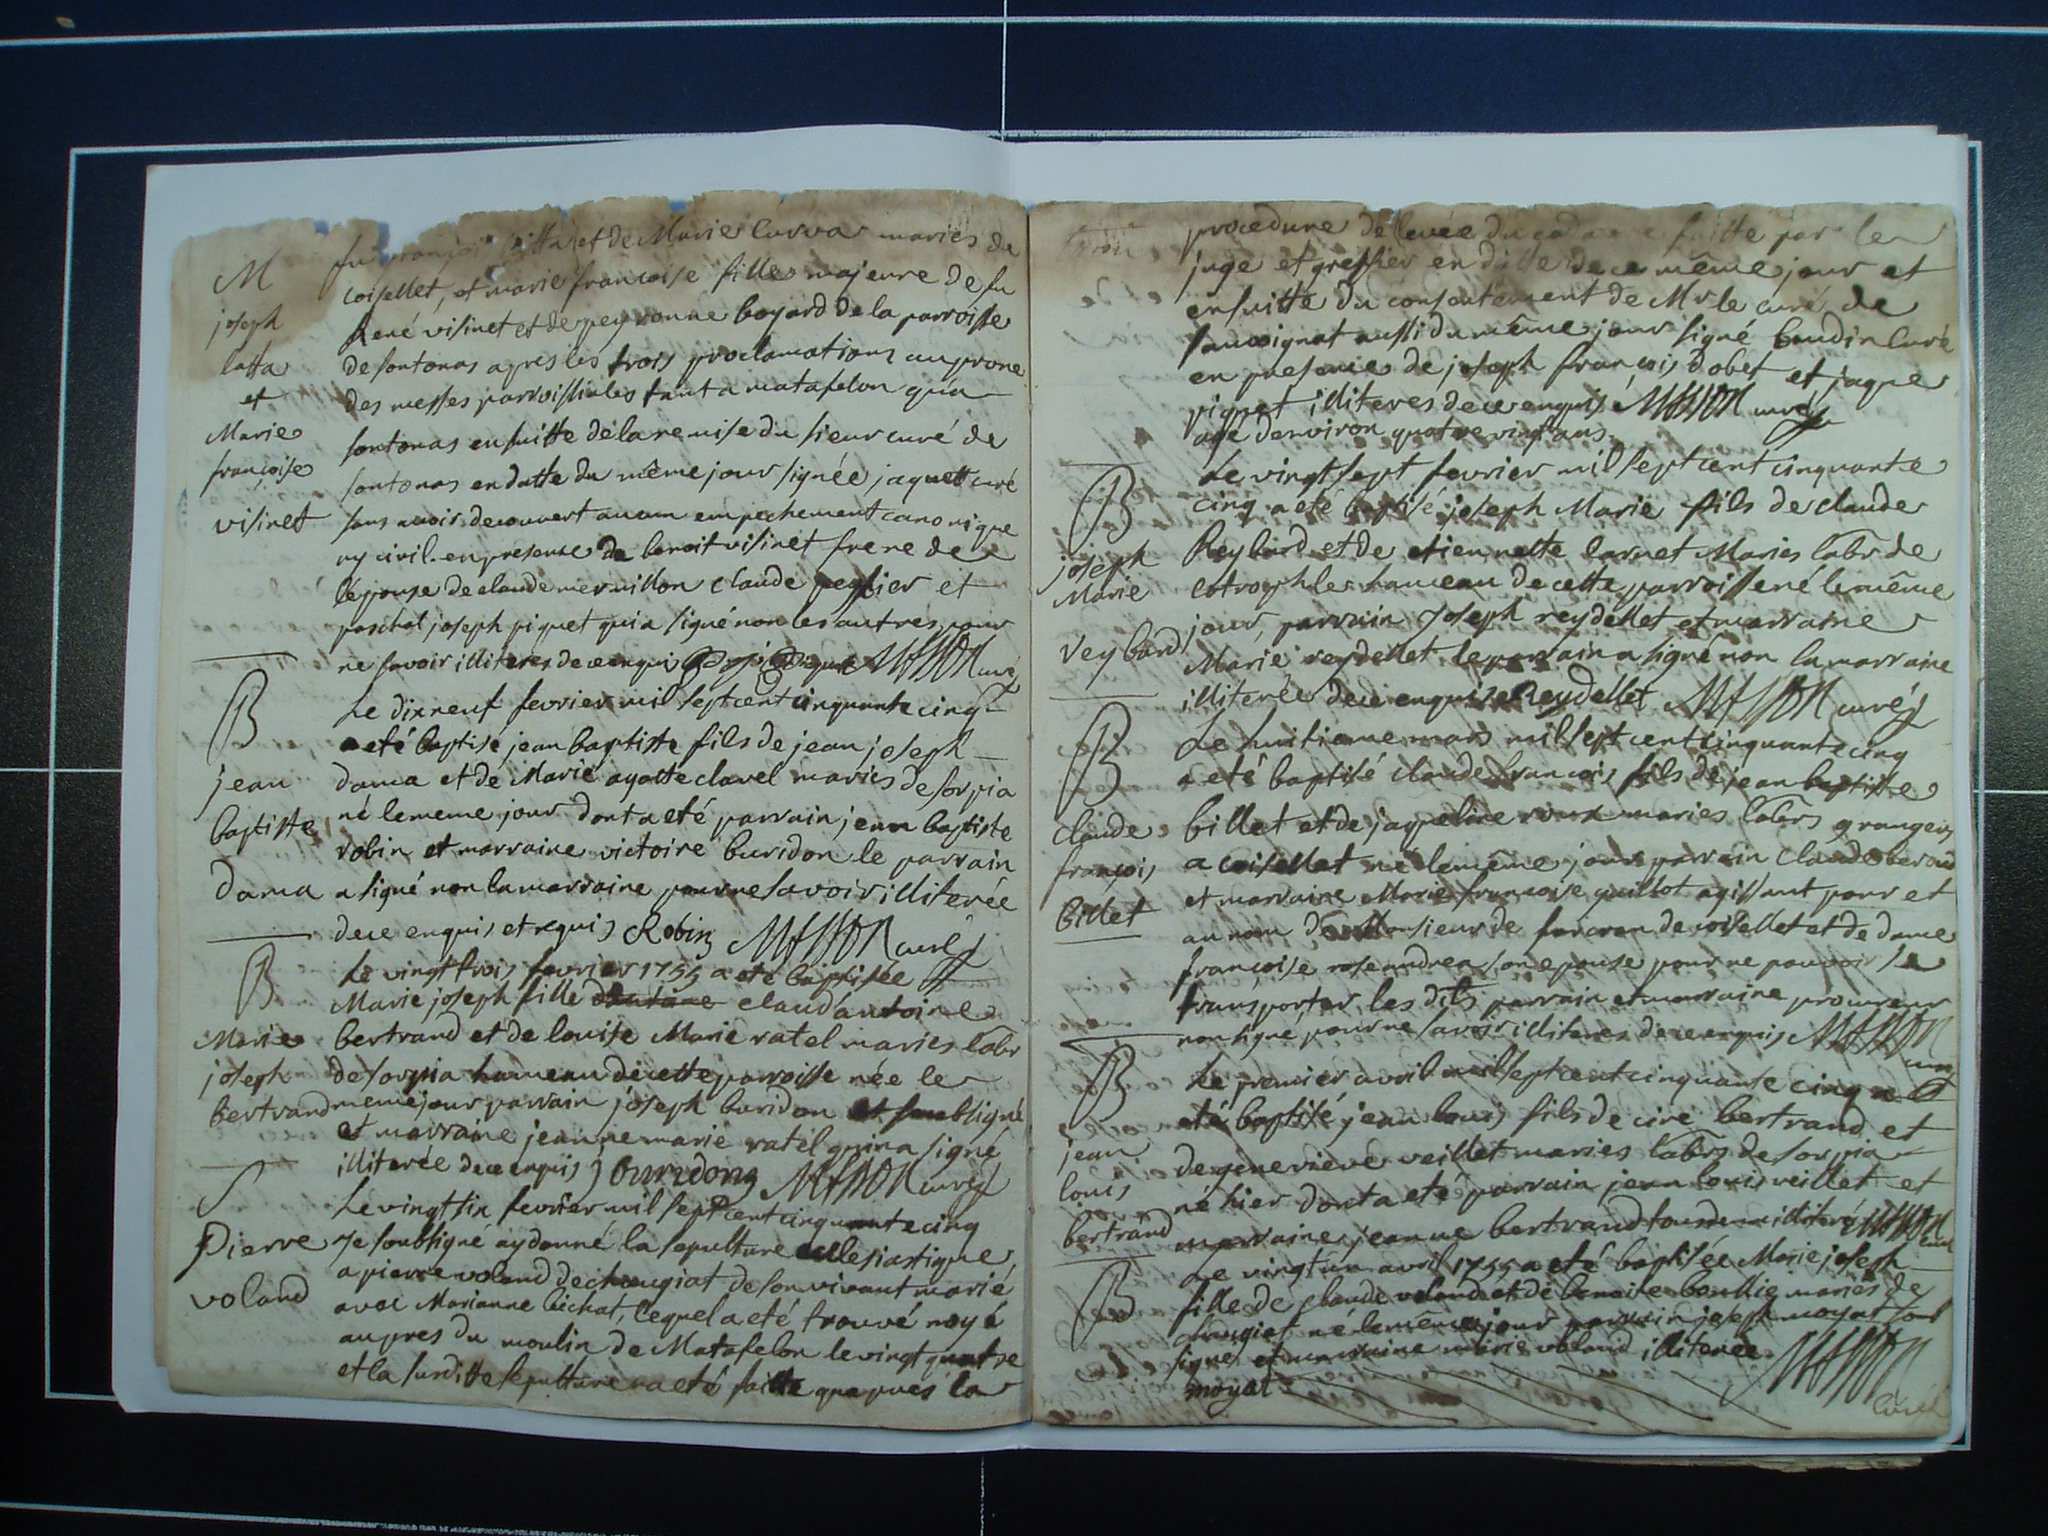 M
joseph
latta
et
Marie
françoise
visinet
fu françois latta et de Marie Curva mariés de
coisellet, et marie françoise fille majeure de fu
René visinet et de peyronne bogard de la parroisse
de sontonas apres les trois proclamations au prone
des messes parroissiales tant a matafelon qu'a
sontonas ensuitte de la remise du sieur curé de
sontonas en datte du même jour signée jaquett curé
sans avoir decouvert aucun empechement canonique
ny civil. en presence de benoit visinet frere de
lépouse de claude mermillon claude peglier et
paschal joseph piquet qui a signé non les autres pour
ne savoir illiteres de ce enquis curé
B
jean
baptiste
dama
Le dixneuf fevrier mil sept cent cinquante cinq
a eté baptisé jean baptiste fils de jean joseph
dama et de Marie agathe clavel mariés de sorpia
né le meme jour dont a eté parrain jean baptiste
robin et marraine victoire buridon le parrain
a signé non la marraine pour ne savoir illiterée
de ce enquis et requis Robin MASSON curé
B
Marie
joseph
bertrand
Le vingt trois fevrier 1755 a eté baptisée
Marie joseph fille claud'antoine
bertrand et de louise Marie ratel maries labr
de sorpia hameau de cette parroisse née le
meme jour parrain joseph buridon et soubsigné
et marraine jeanne marie ratel qui n'a signé
illiterée de ce enquis J buridon MASSON curé
S
Pierre
voland
Le vingt six fevrier mil sept cent cinquante cinq
Je soubsigné ay donné la sepulture ecclesiastique
a pierre voland de chougiat de son vivant marié
avec Marianne bichat, lequel a eté trouvé noyé
aupres du moulin de Matafelon le vingt quatre
et la susditte sepulture a eté faitte qu'apres la
procedure de levée du cadavre faitte par le
juge et greffier en datte de ce même jour et
ensuitte du consentement de Mr le curé de
samognat aussi du même jour signé baudin Curé
en presence de joseph françois dobet et jaque
piquet illiteres de ce enquis MASSON curé
agé d'environ quatre vingt ans
B
joseph
Marie
reybard
Le vingt sept fevrier mil sept cent cinquante
cinq a eté baptisé joseph Marie fils de claude
Reybard et de etiennette Carnet Maries labr de
hameau de cette parroisse né le même
jour, parrain joseph reydellet et marraine
Marie reydellet le parrain a signé non la marraine
illiterée de ce enquise Reydellet MASSON curé
B
claude
françois
billet
Le huitieme mars mil sept cent cinquante cinq
a eté baptisé claude françois fils de jean baptiste
billet et de jaqueline roux maries labrs grangers
a coisellet né le même jour parrain claude beroud
et marraine Marie françoise guillot agissant pour et
au nom de Monsieur de de coisellet et de dame
françoise rose andrea son epouse pour ne pouvoir se
transporter, les dits parrain et marraine procureur
non signé pour ne savoir illiteres de ce enquis MASSON
curé
B
jean
louis
bertrand
Le premier avril mil sept cent cinquante cinq a
eté baptisé jean louis fils de ciré bertrand et
de genevieve veillet maries labrs de sorpia
né hier dont a eté parrain jean louis veillet et
marraine jeanne bertrand tous deux illiteré MASSON
curé
B
Le vingt un avril 1755 a eté baptisée Marie joseph
fille de claude voland et de benoite boullie mariés de
chougiat né le même jour parrain joseph moyat soub
signé et marraine marie voland illiterée MASSON
moyat
Curé